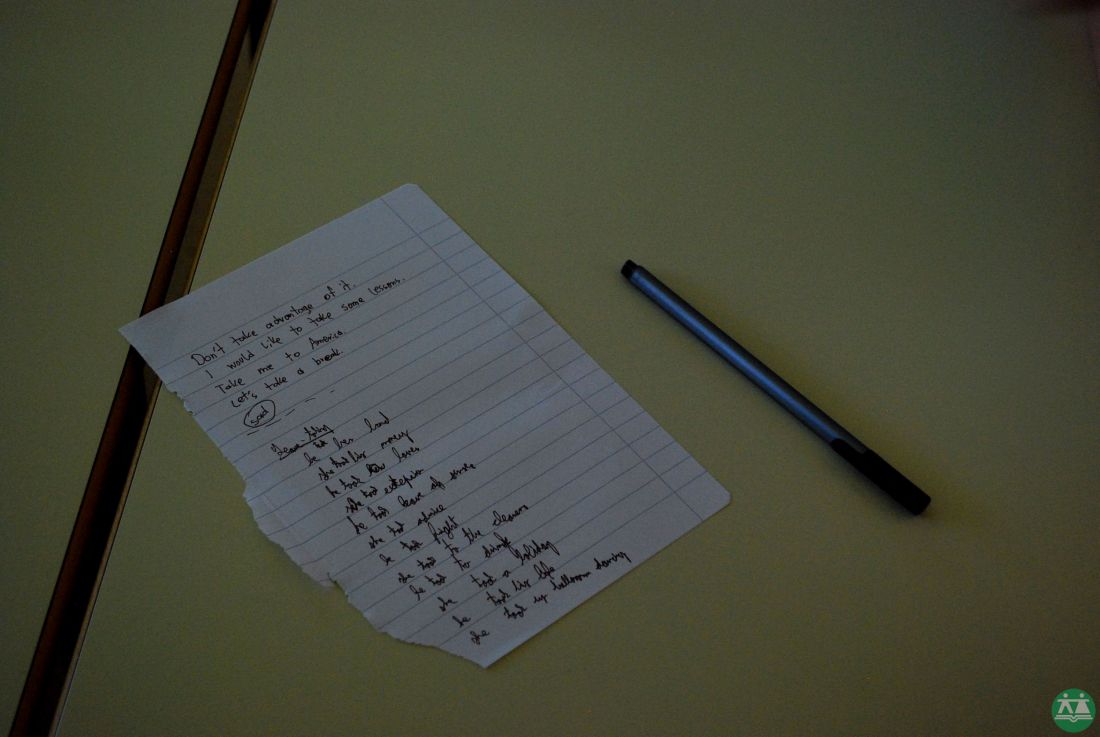 Don't take advantage of it.
I would like to take some lessons.
Take me to America.
Let's take a break.
sad
he took her hand
she took his money
he took her loves
she took exception
he took leave of sense
she took advice
he took fight
she took to the cleaners
he took to drink
she took a holiday
he took his life
she took up ballroom dancing